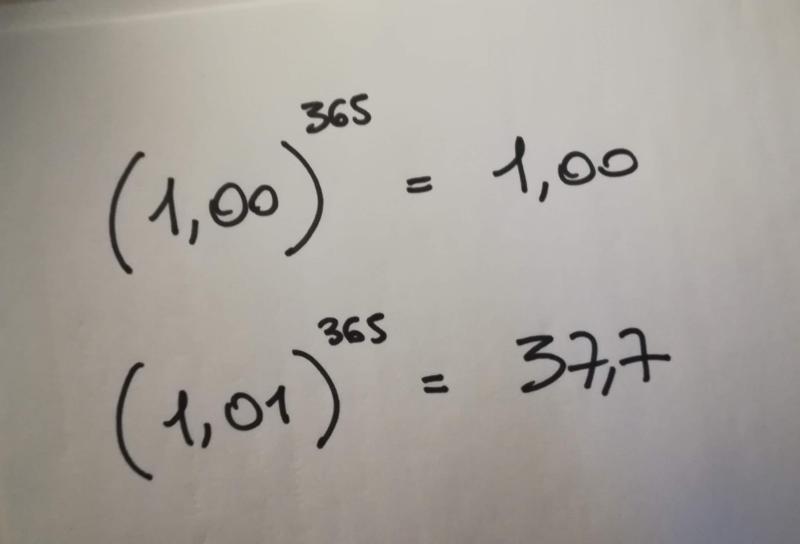 (1,00)³⁶⁵ = 1,00
(1,01)³⁶⁵ = 37,7